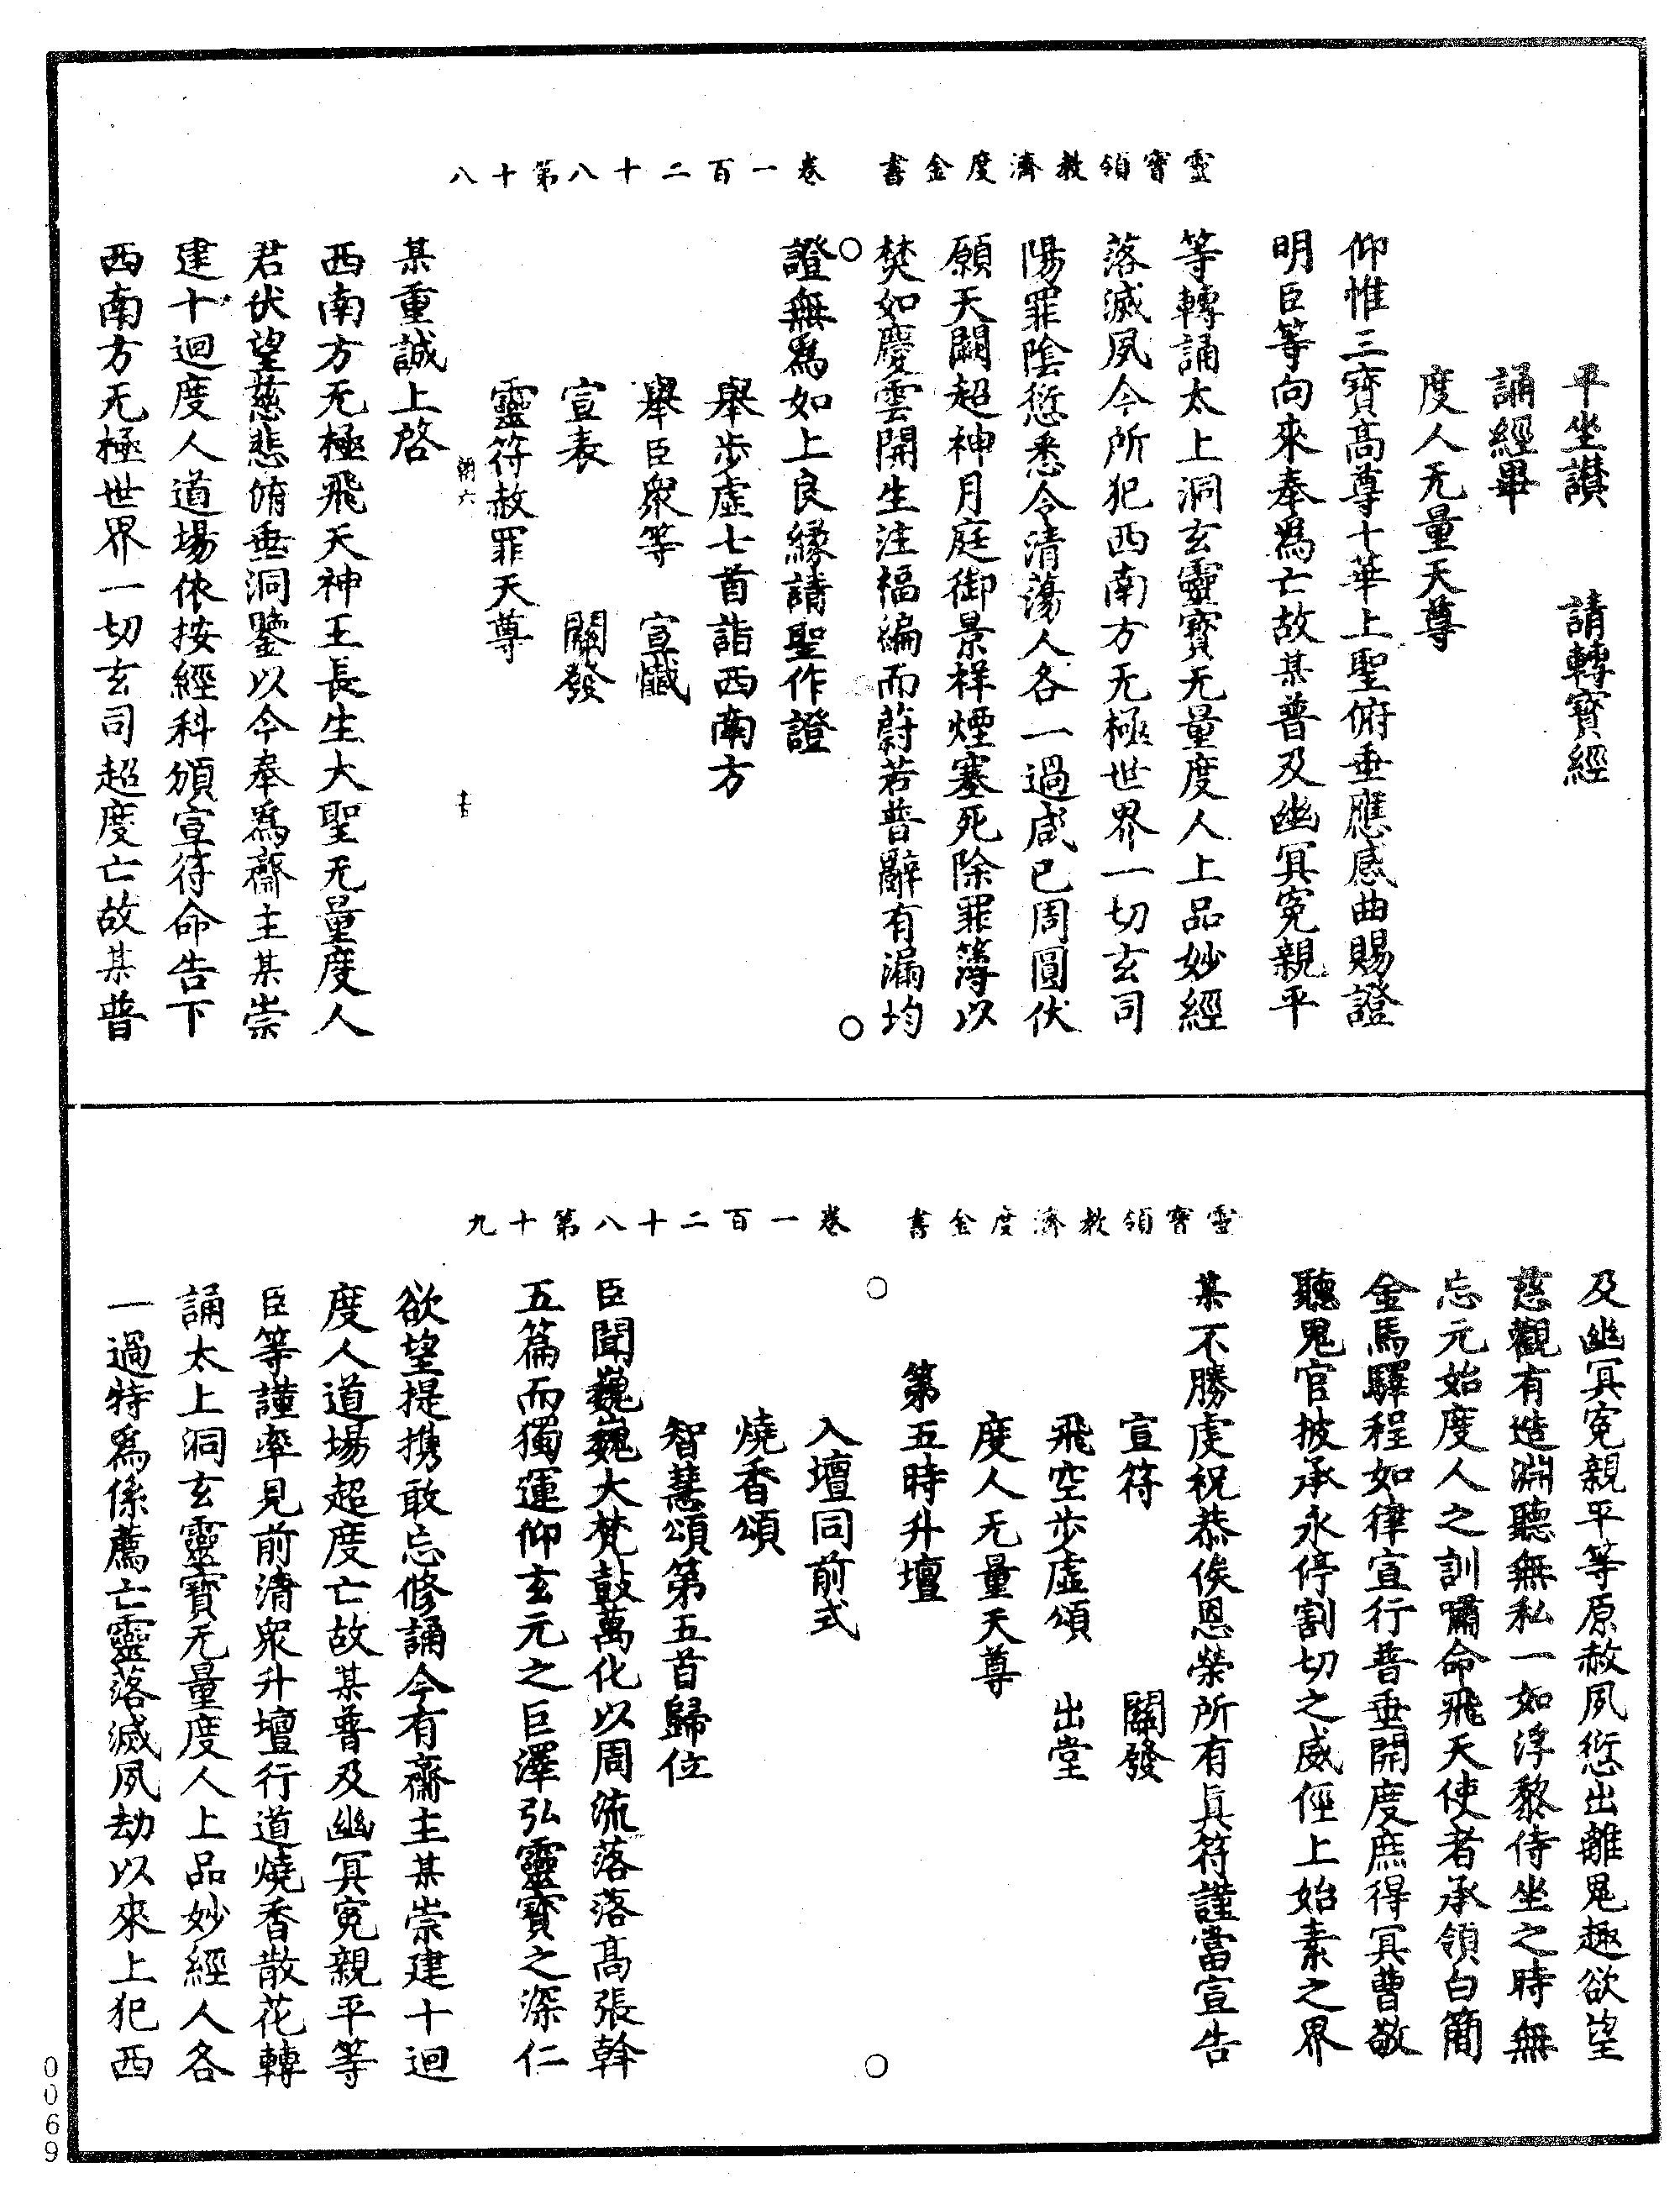 靈寶領教濟度金書　卷一百二十八第十八
平坐讃　請轉寶經
誦經畢
度人无量天尊
仰惟三寶髙尊十華上聖俯垂應感曲賜證
明臣等向來奉爲亡故某普及幽冥寃親平
等轉誦太上洞玄靈寶无量度人上品妙經
落滅夙今所犯西南方无極世界一切玄司
陽罪陰愆悉令清蕩人各一過咸已周圓伏
願天闕超神月庭御景祥煙塞死除罪簿以
焚如慶雲開生注福編而蔚若普辭有漏均
證無爲如上良縁請聖作證
舉步虛七首詣西南方
舉臣衆等　宣懺
宣表　關發
靈符赦罪天尊
某重誠上啓
西南方无極飛天神王長生大聖无量度人
君伏望慈悲俯垂洞鑒以今奉爲齋主某崇
建十迴度人道場依按經科頒宣符命告下
西南方无極世界一切玄司超度亡故某普
靈寶領教濟度金書　卷一百二十八第十九
及幽冥寃親平等原赦夙愆出離鬼趣欲望
慈觀有造淵聽無私一如浮黎侍坐之時無
忘元始度人之訓嘯命飛天使者承領白簡
金馬驛程如律宣行普垂開度庶得冥曹敬
聽鬼官披承永停割切之威俓上始素之界
某不勝虔祝恭俟恩榮所有眞符謹當宣告
宣符　關發
飛空步虛頌　出堂
度人无量天尊
第五時升壇
入壇同前式
燒香頌
智慧頌第五首歸位
臣聞巍巍大梵鼓萬化以周流落落髙張斡
五篇而獨運仰玄元之巨澤弘靈寶之深仁
欲望提携敢忘修誦今有齋主某崇建十迴
度人道場超度亡故某普及幽冥寃親平等
臣等謹率見前清衆升壇行道燒香散花轉
誦太上洞玄靈寶无量度人上品妙經人各
一過特爲係薦亡靈落滅夙劫以來上犯西
0069